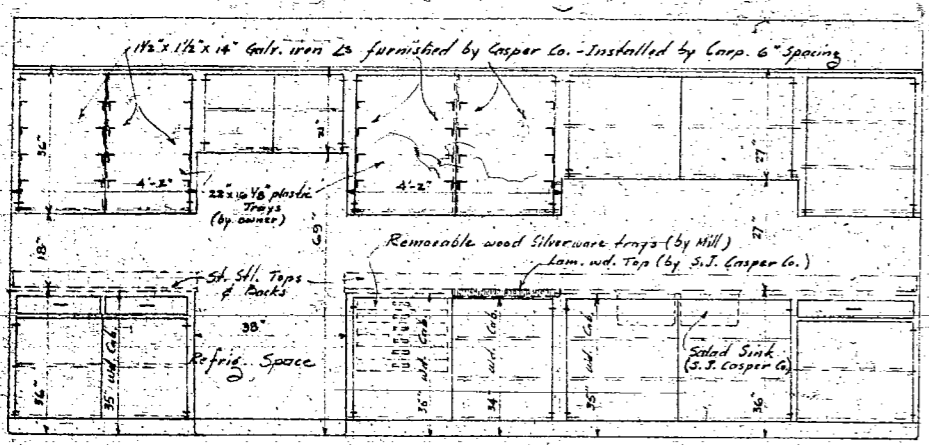 1½"x1½"x14" Galv. iron Ls furnished by Casper Co. - Installed by Carp. 6" Spacing
36"
4'-2"
22"x16⅛" plastic
Trays
(by owner)
4'-2"
27"
18"
69"
27"
Removeable wood Silverware trays (by Mill)
Lam. wd. Top (by S.J. Casper Co.)
St. Stl. Tops
& Backs
38"
Refrig. Space
36"
35" wd. Cab.
35" wd. Cab.
34" wd. Cab.
35" wd. Cab.
Salad Sink
(S.J. Casper Co)
36"